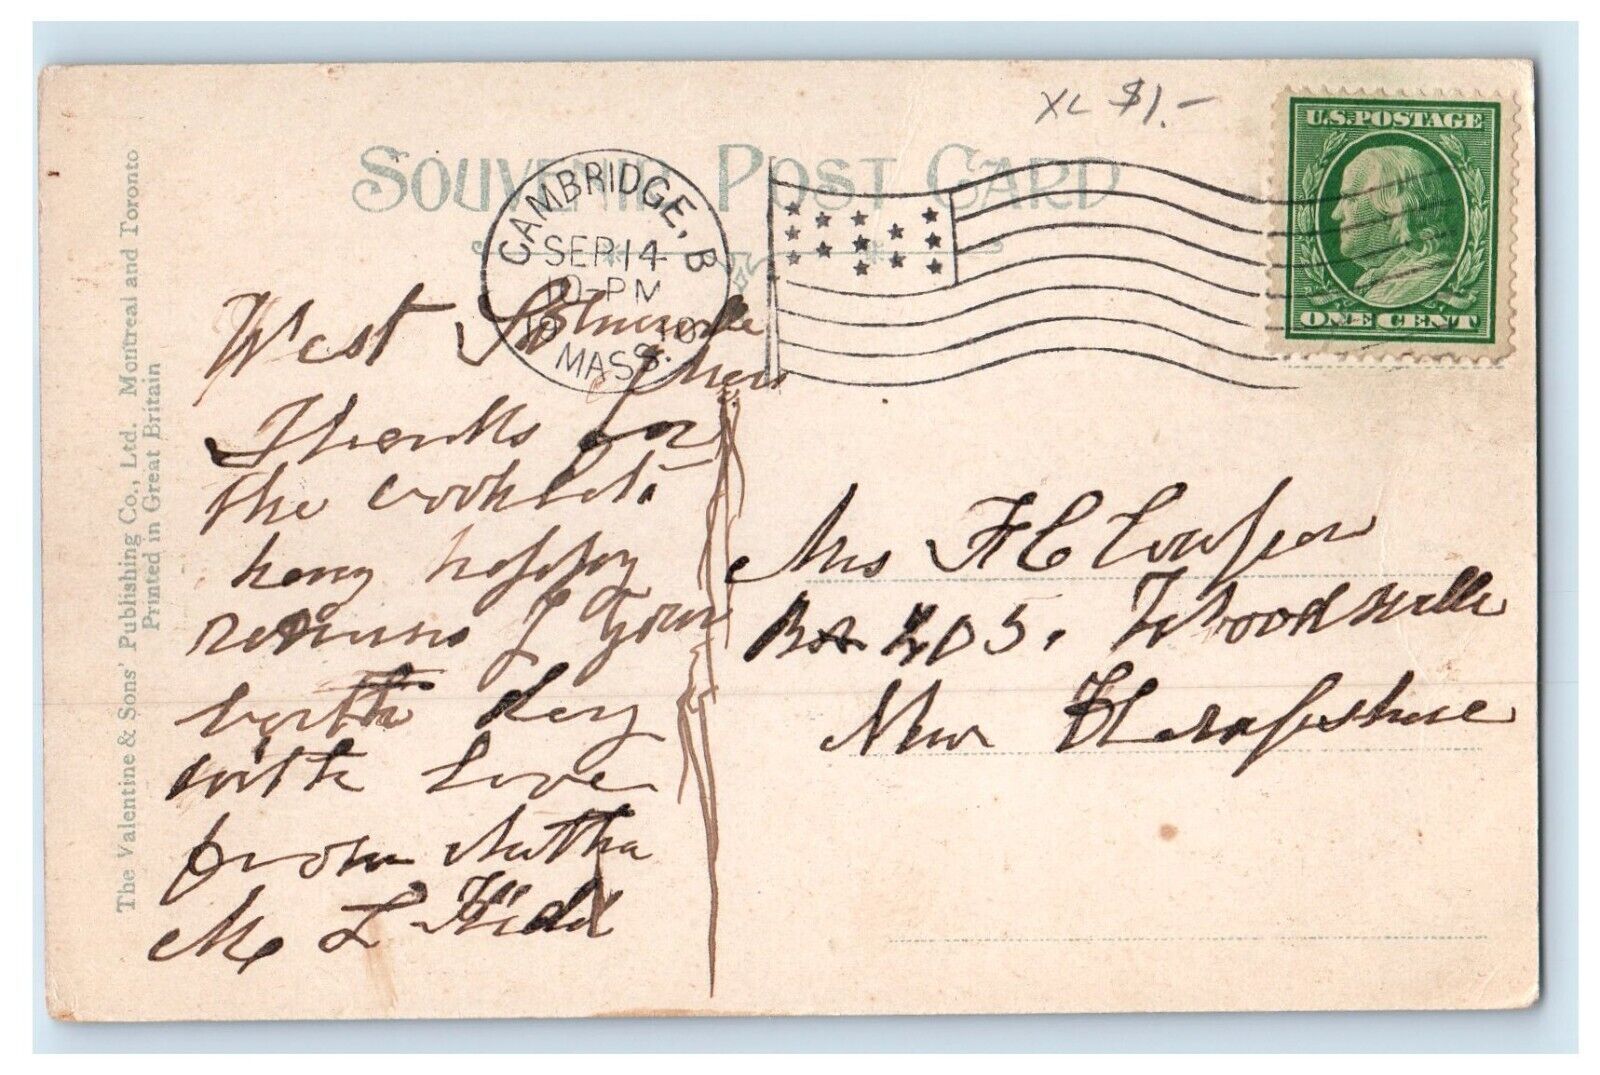 XL $1.-
SOUVENIR POST CARD
U.S. POSTAGE
ONE CENT
CAMBRIDGE, B
SEP 14
10-PM
1910
MASS.
West
Mass
Thanks for
the booklet.
happy
returns of your
birth day
with love
from
M L Kidd
Mrs F C
Box 205. Woodsville
New Hampshire
The Valentine & Sons' Publishing Co., Ltd. Montreal and Toronto
Printed in Great Britain